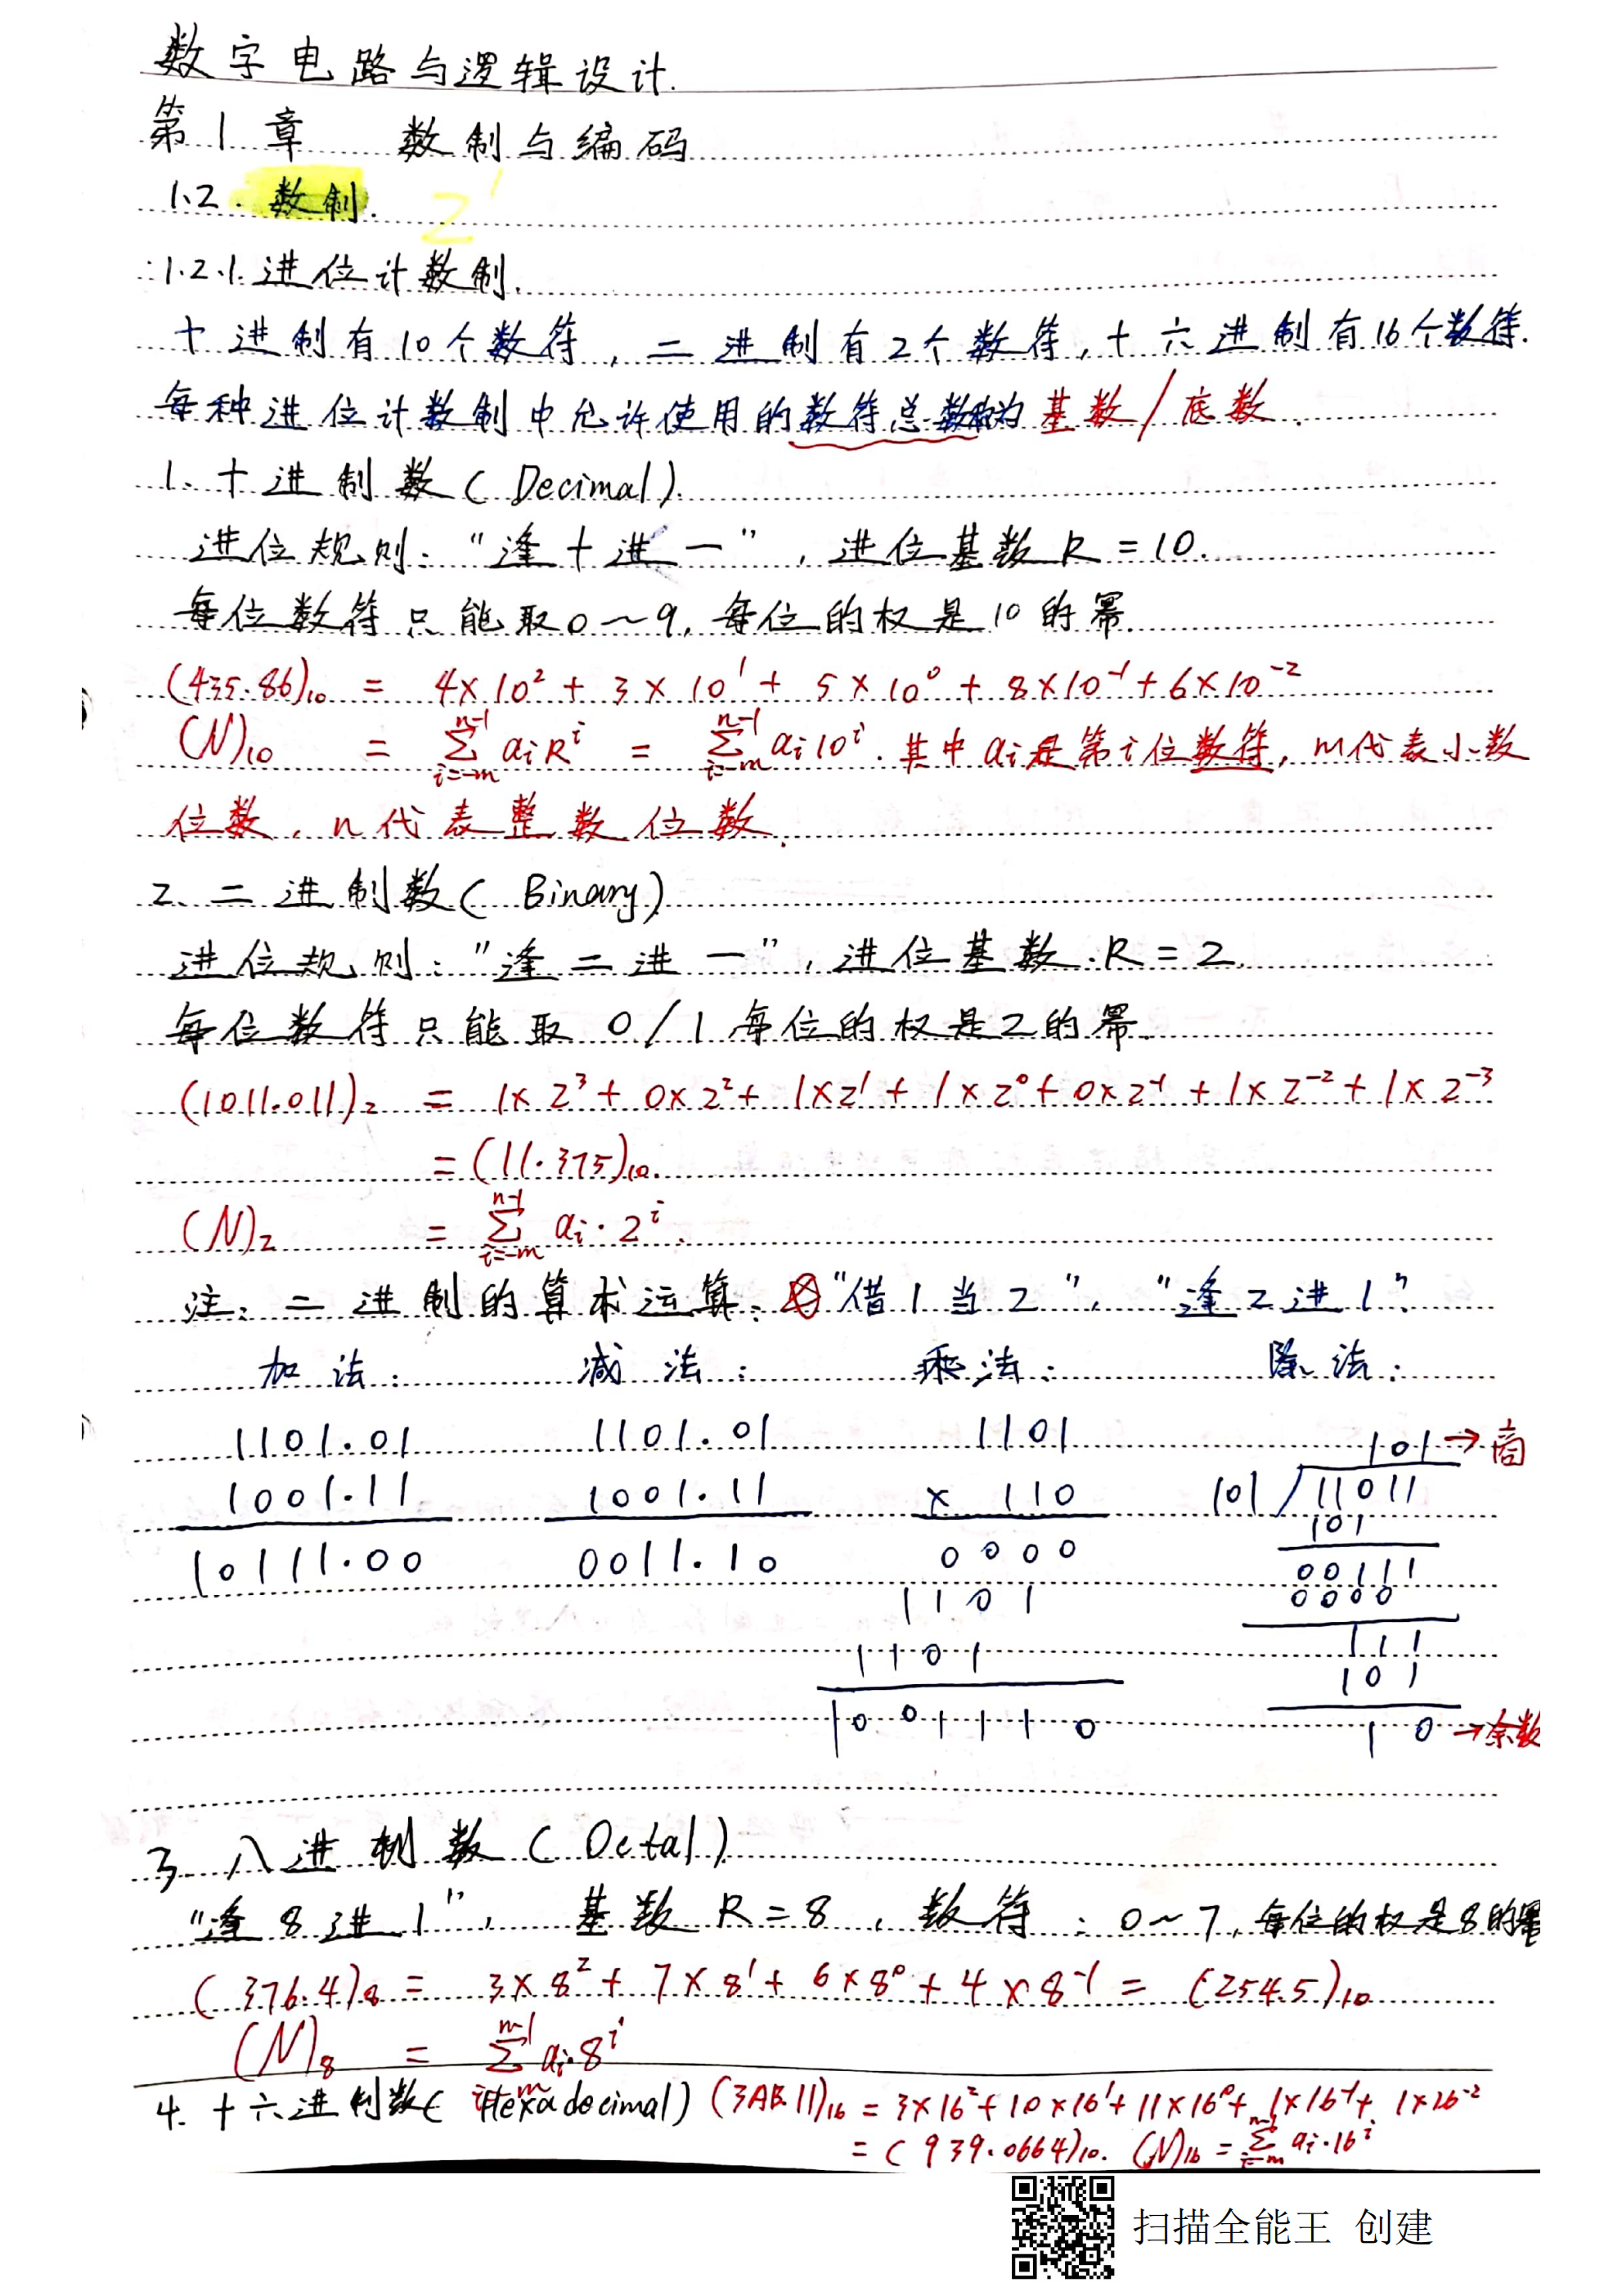 数字电路与逻辑设计.
第1章 数制与编码
1.2. 数制.
2¹
1.2.1.进位计数制.
十进制有10个数符，二进制有2个数符，十六进制有16个数符.
每种进位计数制中允许使用的数符总数称为基数/底数.
1、十进制数( Decimal).
进位规则："逢十进一"，进位基数R=10.
每位数符只能取0~9,每位的权是10的幂.
(435.86)₁₀ = 4×10²+3×10¹+5×10⁰+8×10⁻¹+6×10⁻²
(N)₁₀ = ∑ⁿ⁻¹ᵢ₌₋ₘ aᵢRⁱ = ∑ⁿ⁻¹ᵢ₌₋ₘ aᵢ10ⁱ.其中aᵢ是第i位数符,m代表小数
位数,n代表整数位数.
2、二进制数( Binary)
进位规则："逢二进一"，进位基数.R=2.
每位数符只能取0/1每位的权是2的幂.
(1011.011)₂ = 1×2³+0×2²+1×2¹+1×2⁰+0×2⁻¹+1×2⁻²+1×2⁻³
=(11.375)₁₀.
(N)₂ = ∑ⁿ⁻¹ᵢ₌₋ₘ aᵢ·2ⁱ.
注：二进制的算术运算："借1当2"，"逢2进1".
加法： 减法： 乘法： 除法：
1101.01 1101.01 1101 101→商
1001.11 1001.11 × 110 101/11011
10111.00 0011.10 0000 101
1101 00111
0000
1101 111
101
1001110 10→余数
3.八进制数( Octal)
"逢8进1"，基数R=8，数符：0~7,每位的权是8的幂
(376.4)₈ = 3×8²+7×8¹+6×8⁰+4×8⁻¹=(254.5)₁₀
(N)₈ = ∑ⁿ⁻¹ᵢ₌₋ₘ aᵢ·8ⁱ
4.十六进制数( Hexadecimal) (3AB.11)₁₆ = 3×16²+10×16¹+11×16⁰+1×16⁻¹+1×16⁻²
=(939.0664)₁₀. (N)₁₆=∑ⁿ⁻¹ᵢ₌₋ₘ aᵢ·16ⁱ
扫描全能王 创建